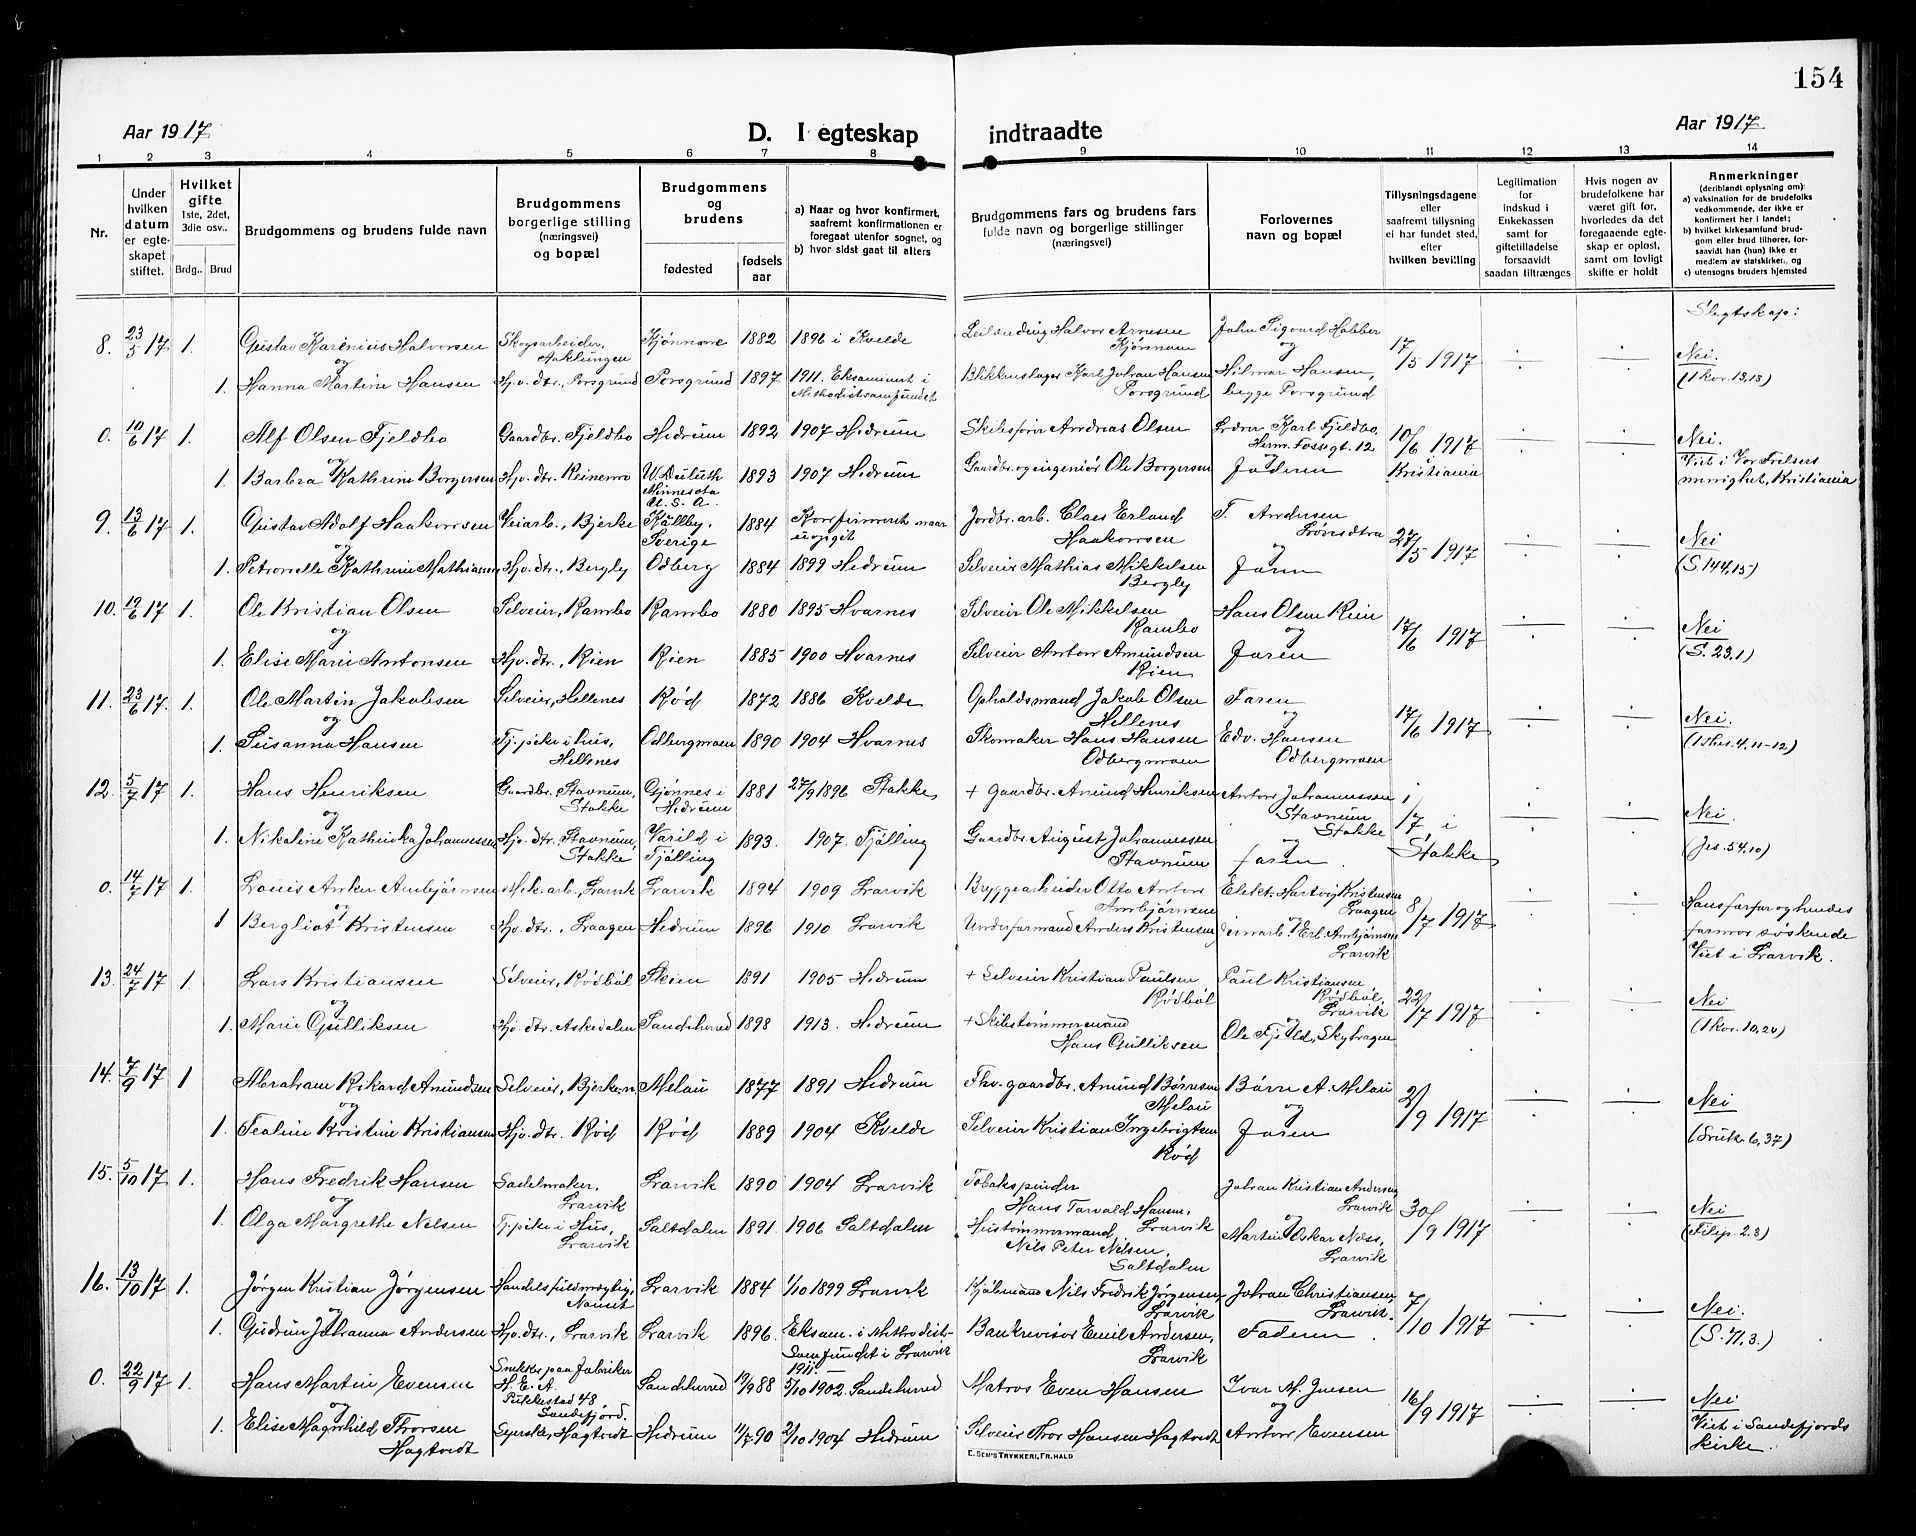 154
Aar 1917
D. I egteskap
indtraadte
Aar 1917
1 2 3 4 5 6 7 8 9 10 11 12 13 14
Nr.
Under hvilken datum er egteskapet stiftet.
Hvilket gifte 1ste, 2det, 3die osv..
Brdg.. Brud
Brudgommens og brudens fulde navn
Brudgommens borgerlige stilling (næringsvei) og bopæl
Brudgommens og brudens
fødested
fødsels aar
a) Naar og hvor konfirmert, saafremt konfirmationen er foregaat utenfor sognet, og
b) hvor sidst gaat til alters
Brudgommens fars og brudens fars fulde navn og borgerlige stillinger (næringsvei)
Forlovernes navn og bopæl
Tillysningsdagene eller saafremt tillysning ei har fundet sted, efter hvilken bevilling
Legitimation for indskud i Enkekassen samt for giftetilladelse forsaavidt saadan tiltrænges
Hvis nogen av brudefolkene har været gift før, hvorledes da det foregaaende egteskap er opløst, samt om lovligt skifte er holdt
Anmerkninger (deriblandt oplysning om):
a) vaksination for de brudefolks vedkommende, der ikke er konfirmert her i landet;
b) hvilket kirkesamfund brudgom eller brud tilhører, forsaavidt han (hun) ikke er medlem av statskirken, og
c) utensogns bruders hjemsted
Slegtskap:
8. 23/5 17 1. Gustav Karenius Halvorsen Skogsarbeider, Anklungen Kjønnerre 1882 1896 i Kvelde Leilænding Halvor Arnesen Kjørmom John Sigvard Habber 17/5 1917 Nei.
og
1. Hanna Martine Hansen Hjv. dtr., Porsgrund Porsgrund 1897 1911. Eksaminert i Methodistsamfundet Blikkenslager Karl Johan Hansen Porsgrund og Hilmar Hansen, begge Porsgrund (1 kor. 13,13)
0. 10/6 17 1. Alf Olsen Fjeldbo Gaardbr. Fjeldbo Hedrum 1892 1907 Hedrum Skibsfører Andreas Olsen Lærer Karl Fjeldbo, Herm. Fossgt. 12 10/6 1917 Kristiania Nei.
og
1. Barbra Kathrine Borgersen Hjv. dtr. Reinemo W. Duluth Minnesota U. S. A. 1893 1907 Hedrum Gaardbr. og ingeniør Ole Borgersen og Faderen Viet i Vor Frelsers menighet, Kristiania
9. 13/6 17 1. Gustav Adolf Haakonsen Veiarb., Bjerke Källby, Sverige 1884 Konfirmeret naar uopgit Jordbr. arb. Claes Erland Haakonsen T. Andersen Løvisdtra 27/5 1917 Nei
og
1. Petronelle Kathrine Mathiassen Hjv. dtr., Bergby Odberg 1884 1899 Hedrum Selveier Mathias Mikkelsen Bergby og Faren (S. 144,15)
10. 19/6 17 1. Ole Kristian Olsen Selveier, Rambo Rambo 1880 1895 Hvarnes Selveier Ole Mikkelsen Rambo Hans Olsen Rien 17/6 1917 Nei
og
1. Elise Marie Antonsen Hjv. dtr., Rien Rien 1885 1900 Hvarnes Selveier Anton Amundsen Rien og Faren (S. 23,1)
11. 23/6 17. 1. Ole Martin Jakobsen Selveier, Hellenes Rød 1872 1886 Kvelde Opholdsmand Jakob Olsen Hellenes Faren 17/6 1917 Nei.
og
1. Susanna Hansen Tj. pike i hus, Hellenes Odbergmoen 1890 1904 Hvarnes Skomaker Hans Hansen Odbergmoen og Edv. Hansen Odbergmoen (1 Thes. 4, 11-12)
12. 5/7 17 1. Hans Henriksen Gaardbr. Stavnum, Stokke Gjønnes i Hedrum 1881 27/9 1896 Stokke + gaardbr. Amund Henriksen Anton Johannessen Stavnum Stokke 1/7 17 i Stokke Nei.
og
1. Nikoline Kathinka Johannessen Hjv. dtr. Stavnum, Stokke Varild i Tjølling 1893. 1907. Tjølling Gaardbr August Johannessen Stavnum og faren. (Jes. 54.10)
0. 14/7 17 1. Louis Anker Ambjørnsen Mek. arb., Larvik Larvik 1894 1909 Larvik Bryggearbeider Otto Anton Ambjørnsen Elekt. Hartvig Kristensen Laagen 8/7 1917 Hans farfar og hendes
og
1 Bergliot Kristensen Hjv. dtr., Laagen Hedrum 1896 1910 Larvik Underformand Anders Kristensen og Jernarb. Erl. Ambjørnsen Larvik farmor søskende Viet i Larvik.
13. 24/7 17 1. Lars Kristiansen Selveier, Rødbøl Skien 1891 1905 Hedrum + Selveier Kristian Paulsen Rødbøl Paul Kristiansen Rødbøl, Larvik 22/7 1917 Nei
og
1. Marie Gulliksen Hjv. dtr. Askedalen Sandeherred 1898 1913. Hedrum + Skibstømmermand Hans Gulliksen og Ole Fjeld, Skybragen (1 kor. 10,24)
14. 7/9 17 1 Abraham Rikard Amundsen Selveier, Bjerke n. Melau 1877 1891 Hedrum Fhv. gaardbr. Amund Børresen Melau Børre A. Melau 2/9 1917 Nei
og
1. Tealine Kristine Kristiansen Hjv. dtr. Rød Rød 1889 1904 Kvelde Selveier Kristian Ingebrigtsen Rød og Faren (Luk. 6,37)
15. 5/10 17 1. Hans Fredrik Hansen Sadelmaker, Larvik Larvik 1890 1904 Larvik Tobakspinder Hans Torvald Hansen, Larvik Johan Kristian Andersen, Larvik 30/9 1917 Nei
og
1. Olga Margrethe Nilsen Tj. pike i Hus, Larvik Saltdalen 1891. 1906 Saltdalen Hustømmermand Nils Peter Nilsen, Saltdalen og Martin Oskar Næss, Larvik (Filip. 2.3)
16. 13/10 17 1. Jørgen Kristian Jørgensen Handelsfuldmægtig, Nanset Larvik 1884 1/10 1899 Larvik Kjøbmand Nils Fredrik Jørgensen, Larvik Johan Christiansen, Larvik. 7/10 1917 Nei.
og
1. Gudrun Johanna Andersen Hjv. dtr., Larvik Larvik 1896. Eksam. i Methodistsamfundet i Larvik 1911. Bankrevisor Emil Andersen, Larvik Faderen. (S. 71,3.)
0. 22/9 17 1. Hans Martin Evensen Snekker paa Fabriker H. E. A. Pukkestad 48 Sandefjord. Sandeherred 19/9 88 5/10 1902. Sandeherred Matros Even Hansen Ivar M. Jensen 16/9 1917 Nei
og
1. Elise Magnhild Thorsen Hagtvedt Syerske, Hagtvedt Hedrum 11/7 90 2/10 1904 Hedrum Selveier Thor Hansen Hagtvedt og Anton Evensen Viet i Sandefjords kirke.
E. SEM'S TRYKKERI, FR. HALD